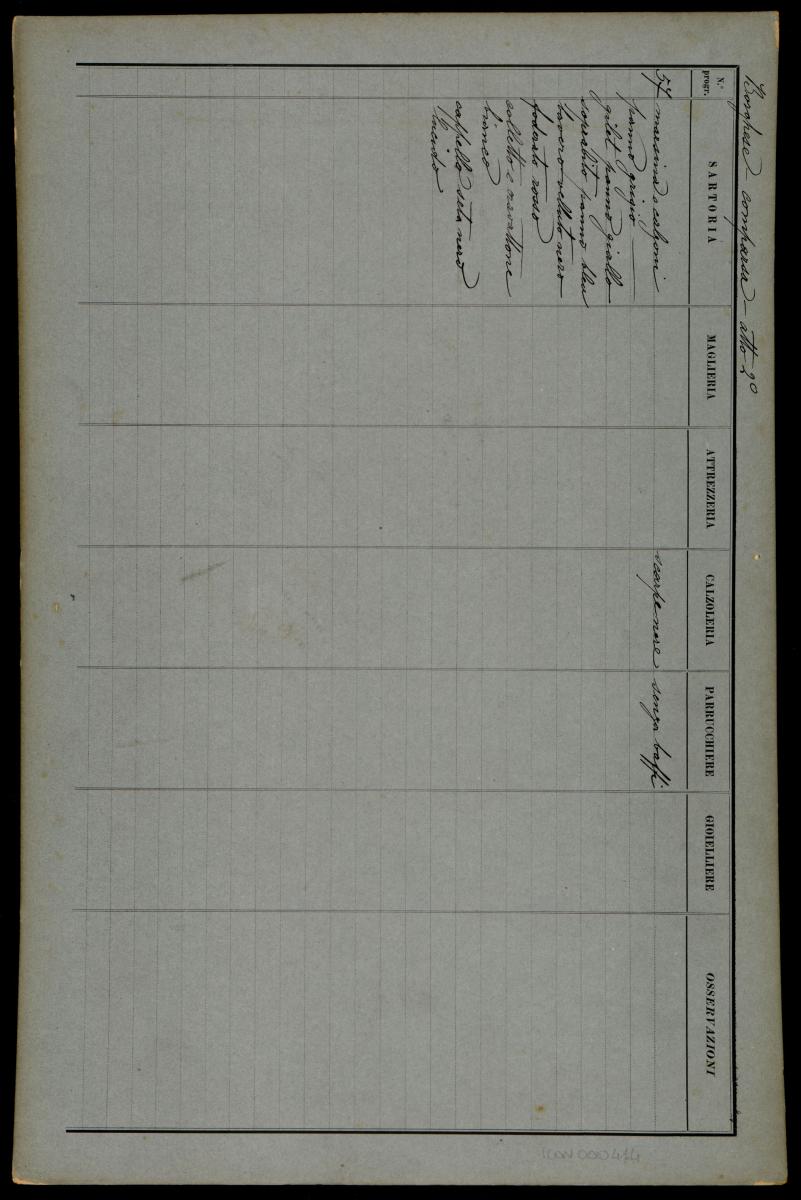 Borghese - comparsa - atto 2º
N.º progr.
SARTORIA
MAGLIERIA
ATTREZZERIA
CALZOLERIA
PARRUCCHIERE
GIOIELLIERE
OSSERVAZIONI
57 marsina e calzoni
panno grigio
gilet panno giallo
soprabito panno bleu
bavero velluto nero
foderato rosso
colletto e cravattone
bianco
cappello seta nero
lucido
scarpe nere
senza baffi
ICON000414